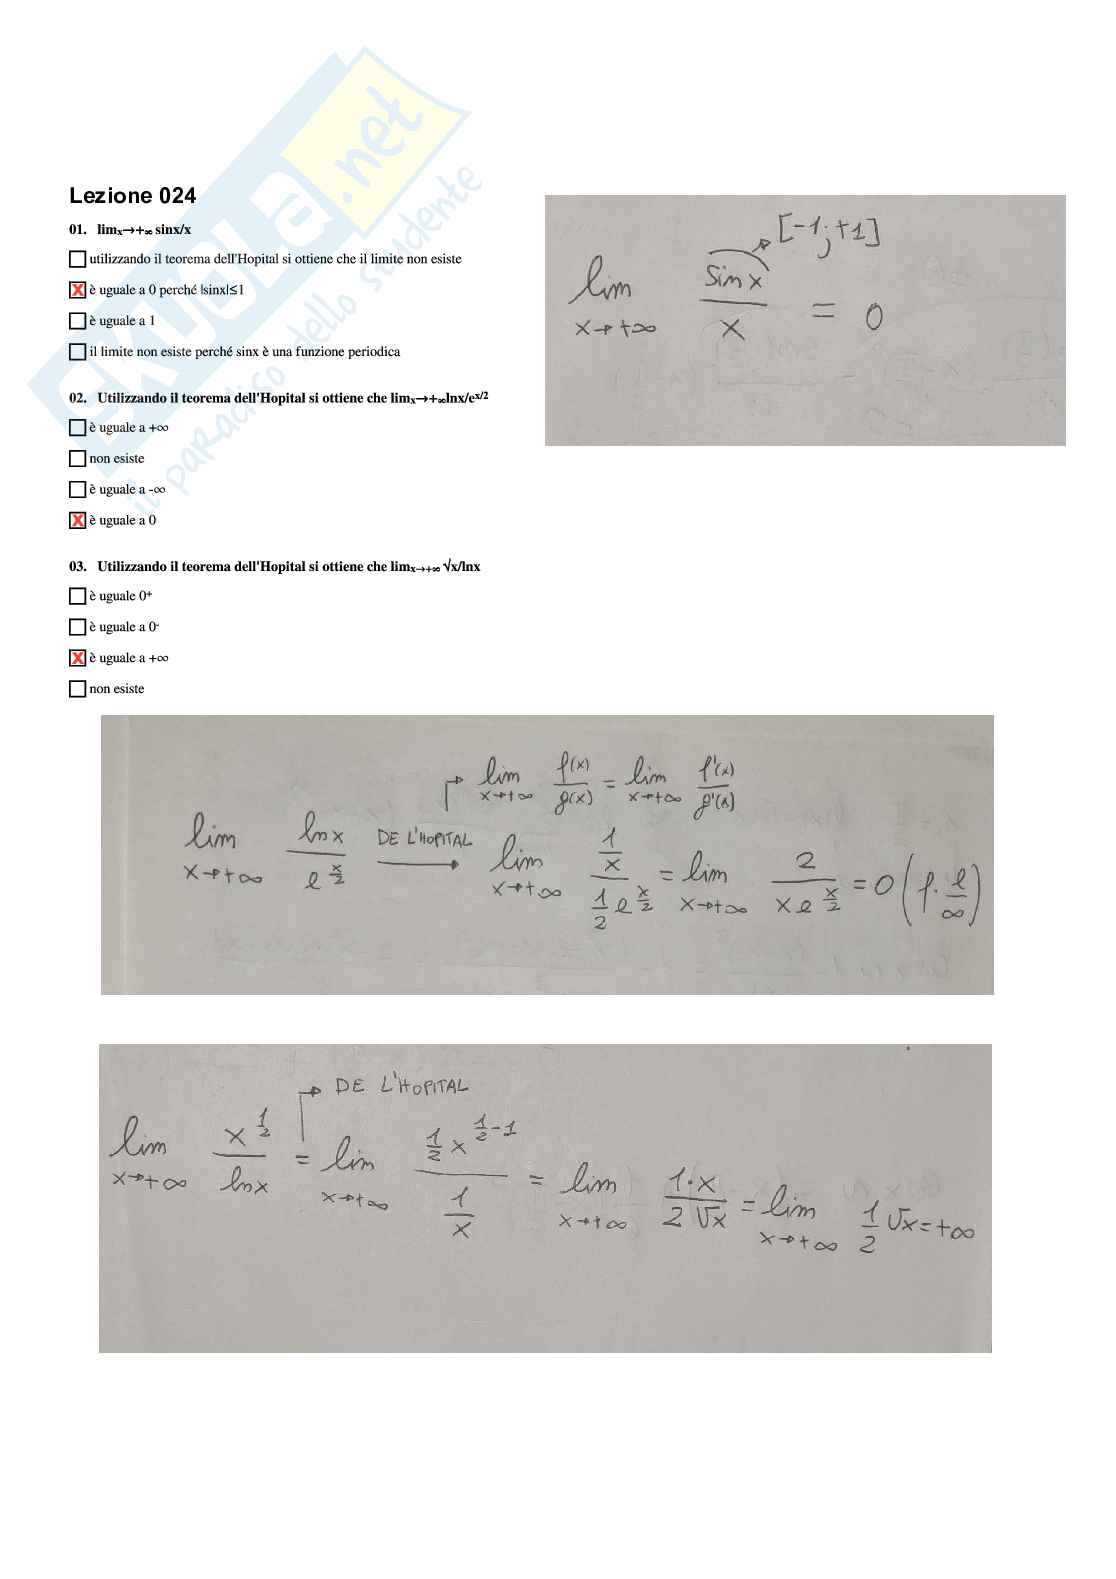 skuola.net
il paradiso dello studente
Lezione 024
01. limx→+∞ sinx/x
utilizzando il teorema dell'Hopital si ottiene che il limite non esiste
X è uguale a 0 perché |sinx|≤1
è uguale a 1
il limite non esiste perché sinx è una funzione periodica
[-1;+1]
lim x→+∞ sin x / x = 0
02. Utilizzando il teorema dell'Hopital si ottiene che limx→+∞lnx/e^x/2
è uguale a +∞
non esiste
è uguale a -∞
X è uguale a 0
03. Utilizzando il teorema dell'Hopital si ottiene che limx→+∞ √x/lnx
è uguale 0⁺
è uguale a 0⁻
X è uguale a +∞
non esiste
lim x→+∞ f(x)/g(x) = lim x→+∞ f'(x)/g'(x)
lim x→+∞ ln x / e^(x/2) DE L'HOPITAL → lim x→+∞ (1/x) / (1/2 e^(x/2)) = lim x→+∞ 2 / (x e^(x/2)) = 0 (f. l/∞)
DE L'HOPITAL
lim x→+∞ x^(1/2) / ln x = lim x→+∞ (1/2 x^(1/2-1)) / (1/x) = lim x→+∞ 1·x / 2√x = lim x→+∞ 1/2 √x = +∞